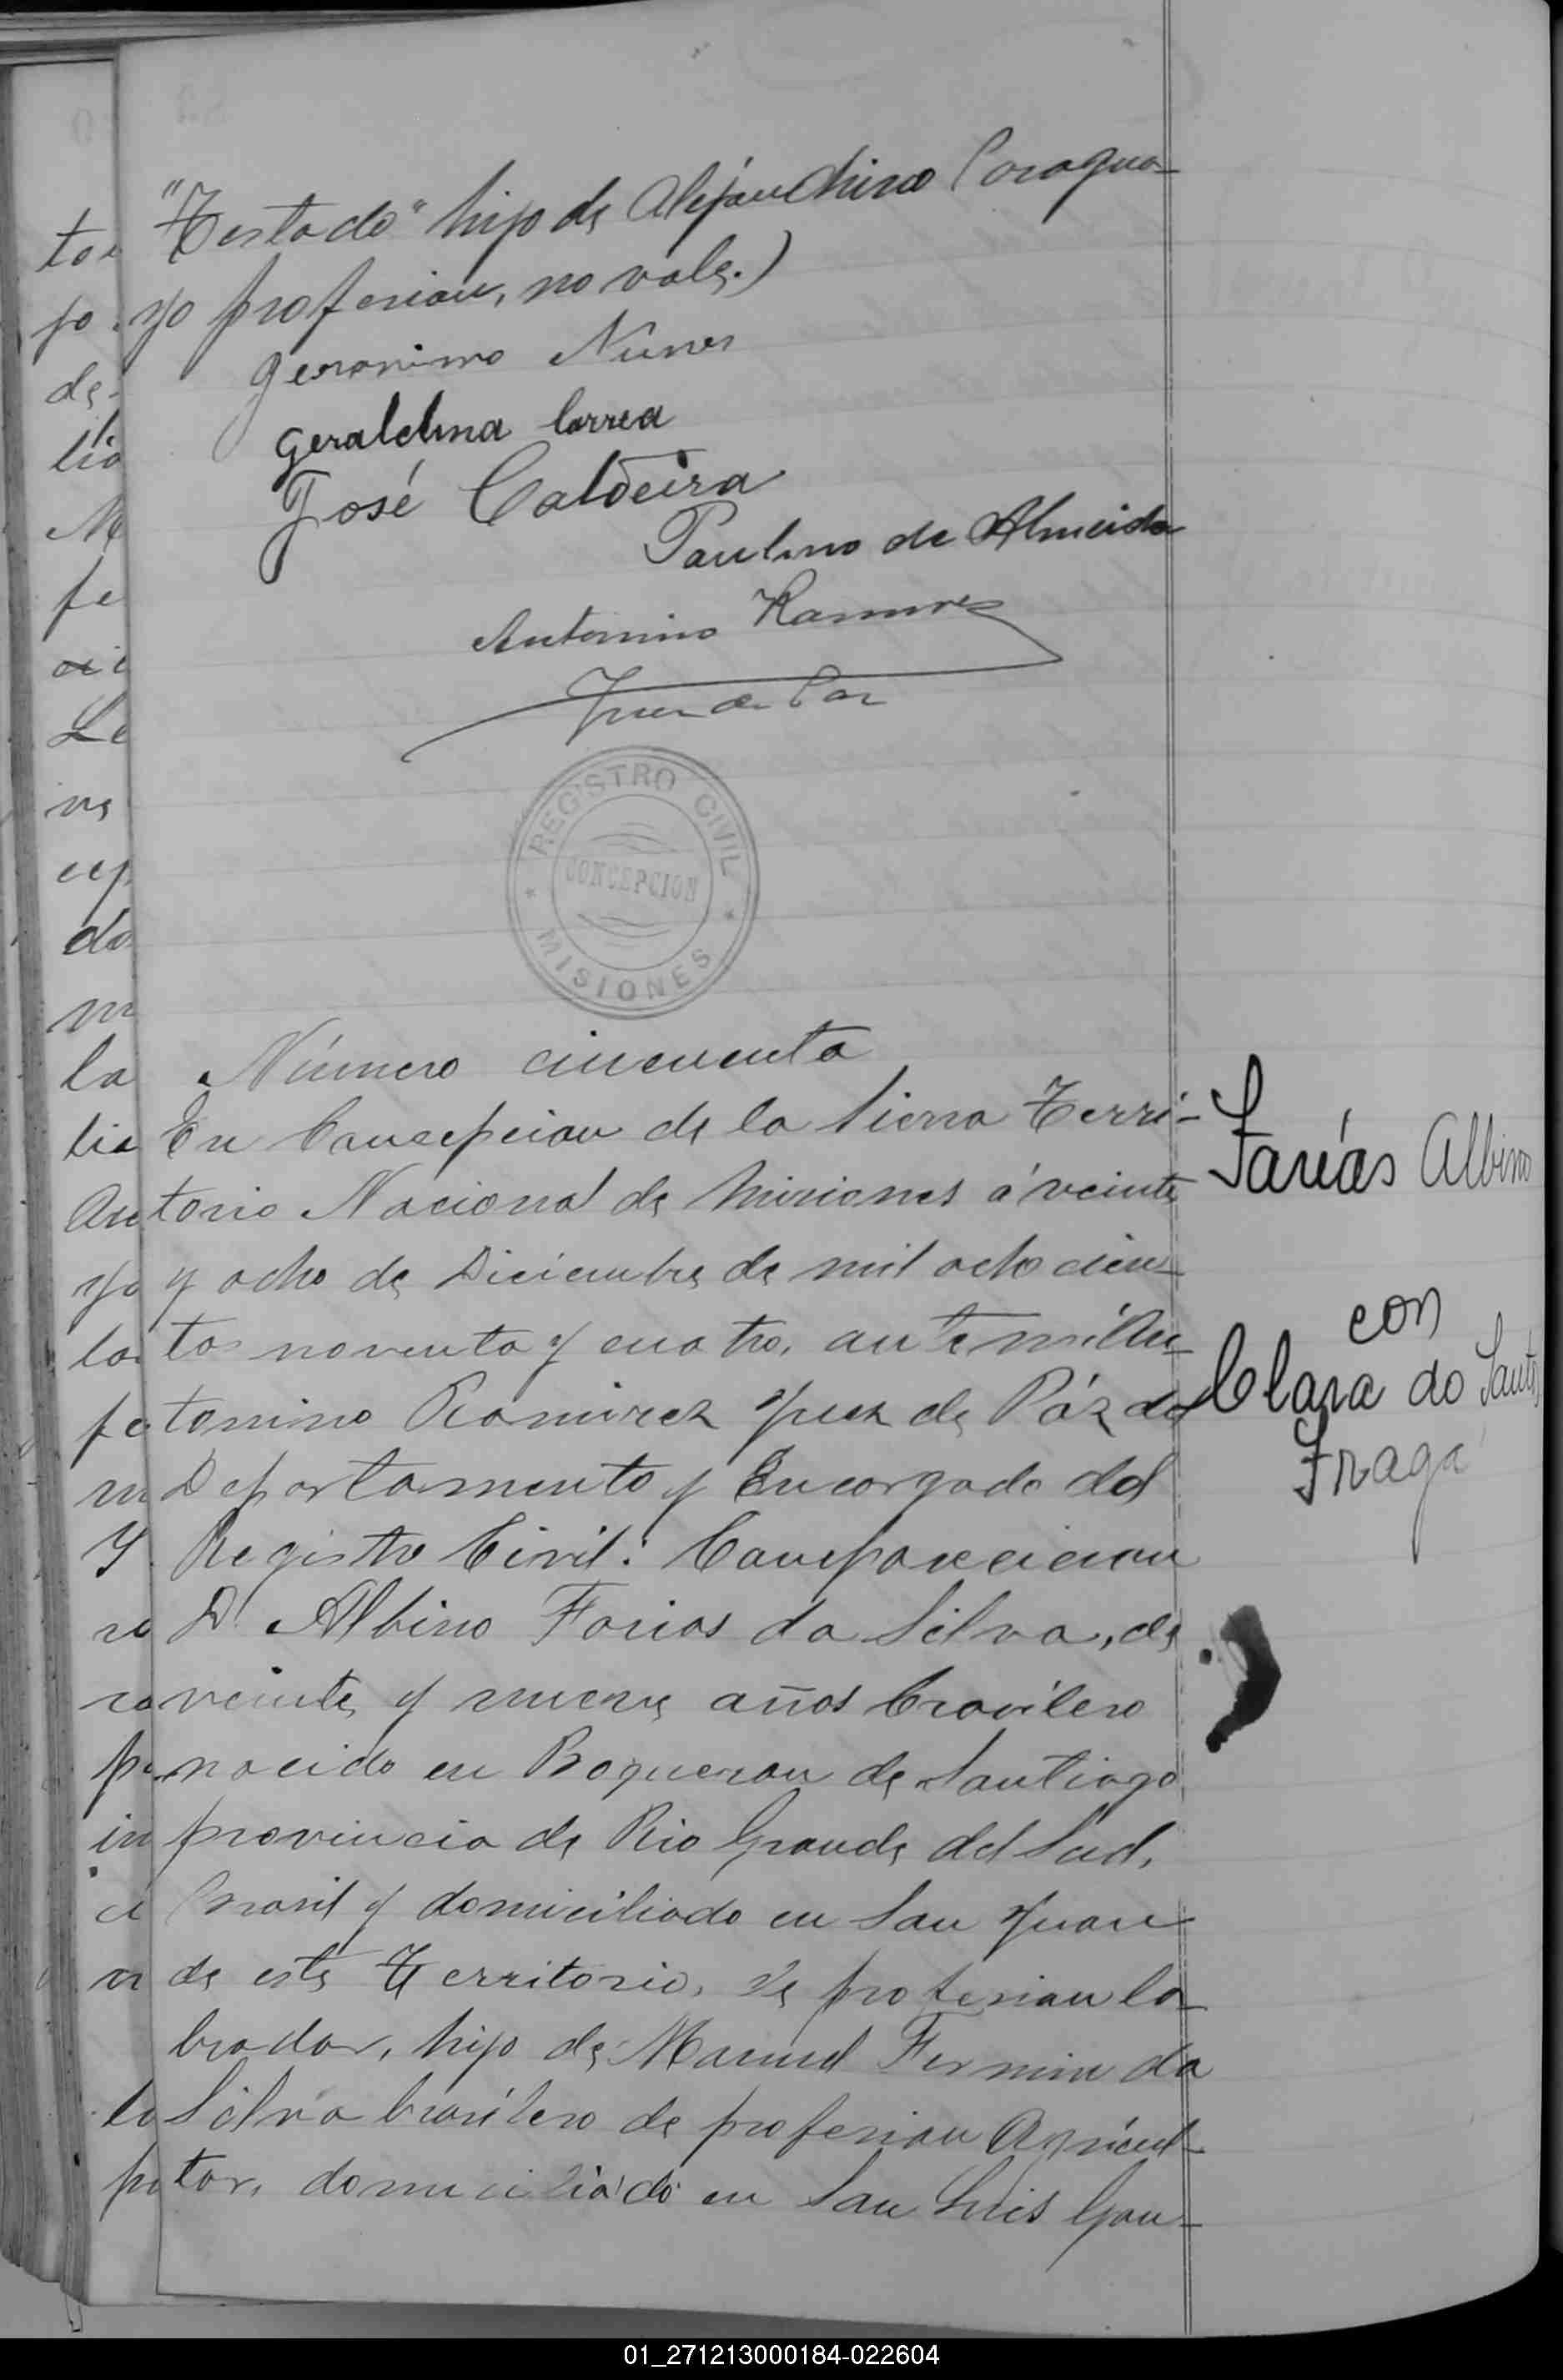 "Testado" hijo de Alejandrino Paragua-
yo profesion, no vale.)
Geronimo Nunes
Geraldina Correa
José Caldeira
Paulino de Almeida
Antonino Ramirez
Juez de Paz
REGISTRO CIVIL
CONCEPCION
MISIONES
Número cincuenta
En Concepcion de la Sierra Terri-
torio Nacional de Misiones á veinte
y ocho de Diciembre de mil ochocien-
tos noventa y cuatro, ante mi An-
tonino Ramirez Juez de Páz del
Departamento y Encargado del
Registro Civil: Comparecieron
D. Albino Farias da Silva, de
veinte y nueve años bracilero
nacido en Boqueron de Santiago
provincia de Rio Grande del Sud,
Brasil y domiciliado en San Juan
de este Territorio, de profesion la-
brador, hijo de Manuel Fermin da
Silva brasilero de profesion Agricul-
tor, domiciliado en San Luis Gon-
Farías Albino
con
Clara do Santo
Fraga
01_271213000184-022604